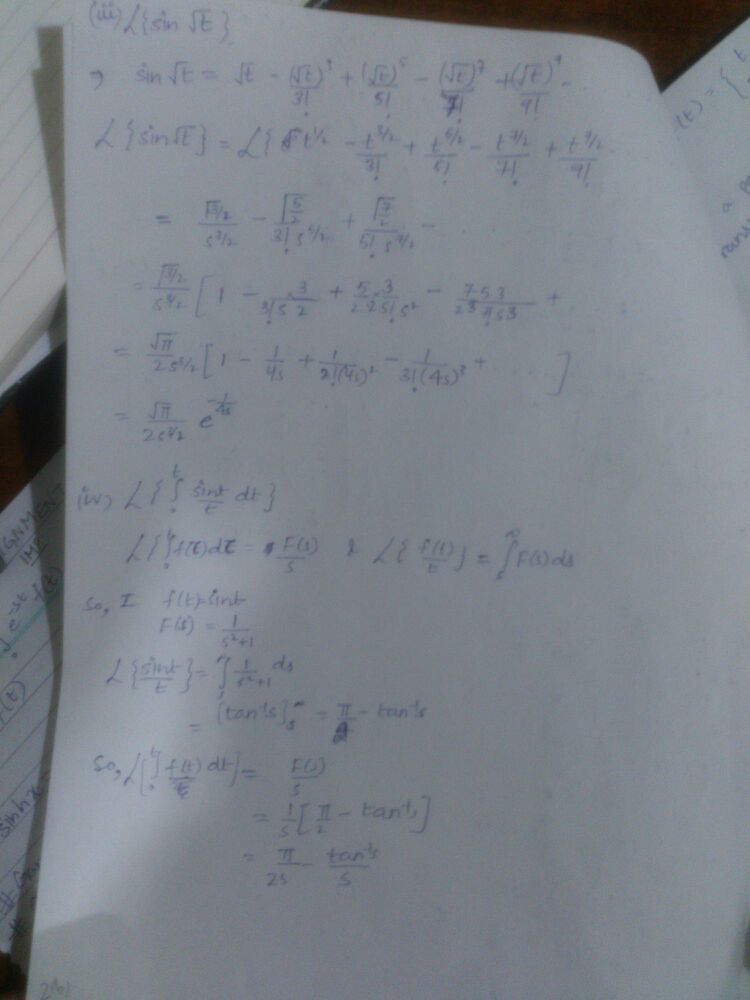 (iii) L{sin √t}
→ sin √t = √t - (√t)³/3! + (√t)⁵/5! - (√t)⁷/7! + (√t)⁹/9! - ....
L{sin √t} = L{ t^1/2 - t^3/2/3! + t^5/2/5! - t^7/2/7! + t^9/2/9! ....
= Γ3/2 / s^3/2 - Γ5/2 / 3! s^5/2 + Γ7/2 / 5! s^7/2 - ....
= Γ3/2 / s^3/2 [ 1 - 3 / 3! s 2 + 5 × 3 / 2 2 5! s² - 7 5 3 / 2³ 7! s³ +
= √π / 2s^3/2 [ 1 - 1/4s + 1/2!(4s)² - 1/3!(4s)³ + .... ]
= √π / 2s^3/2 e^-1/4s
(iv) L{ ∫₀ᵗ sint/t dt }
L{ ∫₀ᵗ f(t) dt = F(s)/s & L{ f(t)/t } = ∫ₛ^∞ F(s) ds
So, I f(t) = sint
F(s) = 1/s²+1
L{ sint/t } = ∫ₛ^∞ 1/s²+1 ds
= [tan⁻¹s]ₛ^∞ = π/2 - tan⁻¹s
So, L[ ∫₀ᵗ f(t)/t dt ] = F(s)/s
= 1/s [ π/2 - tan⁻¹s ]
= π/2s - tan⁻¹s/s
(t) = {
a
IGNMENT
e^-st f(t)
f(t)
sinhx